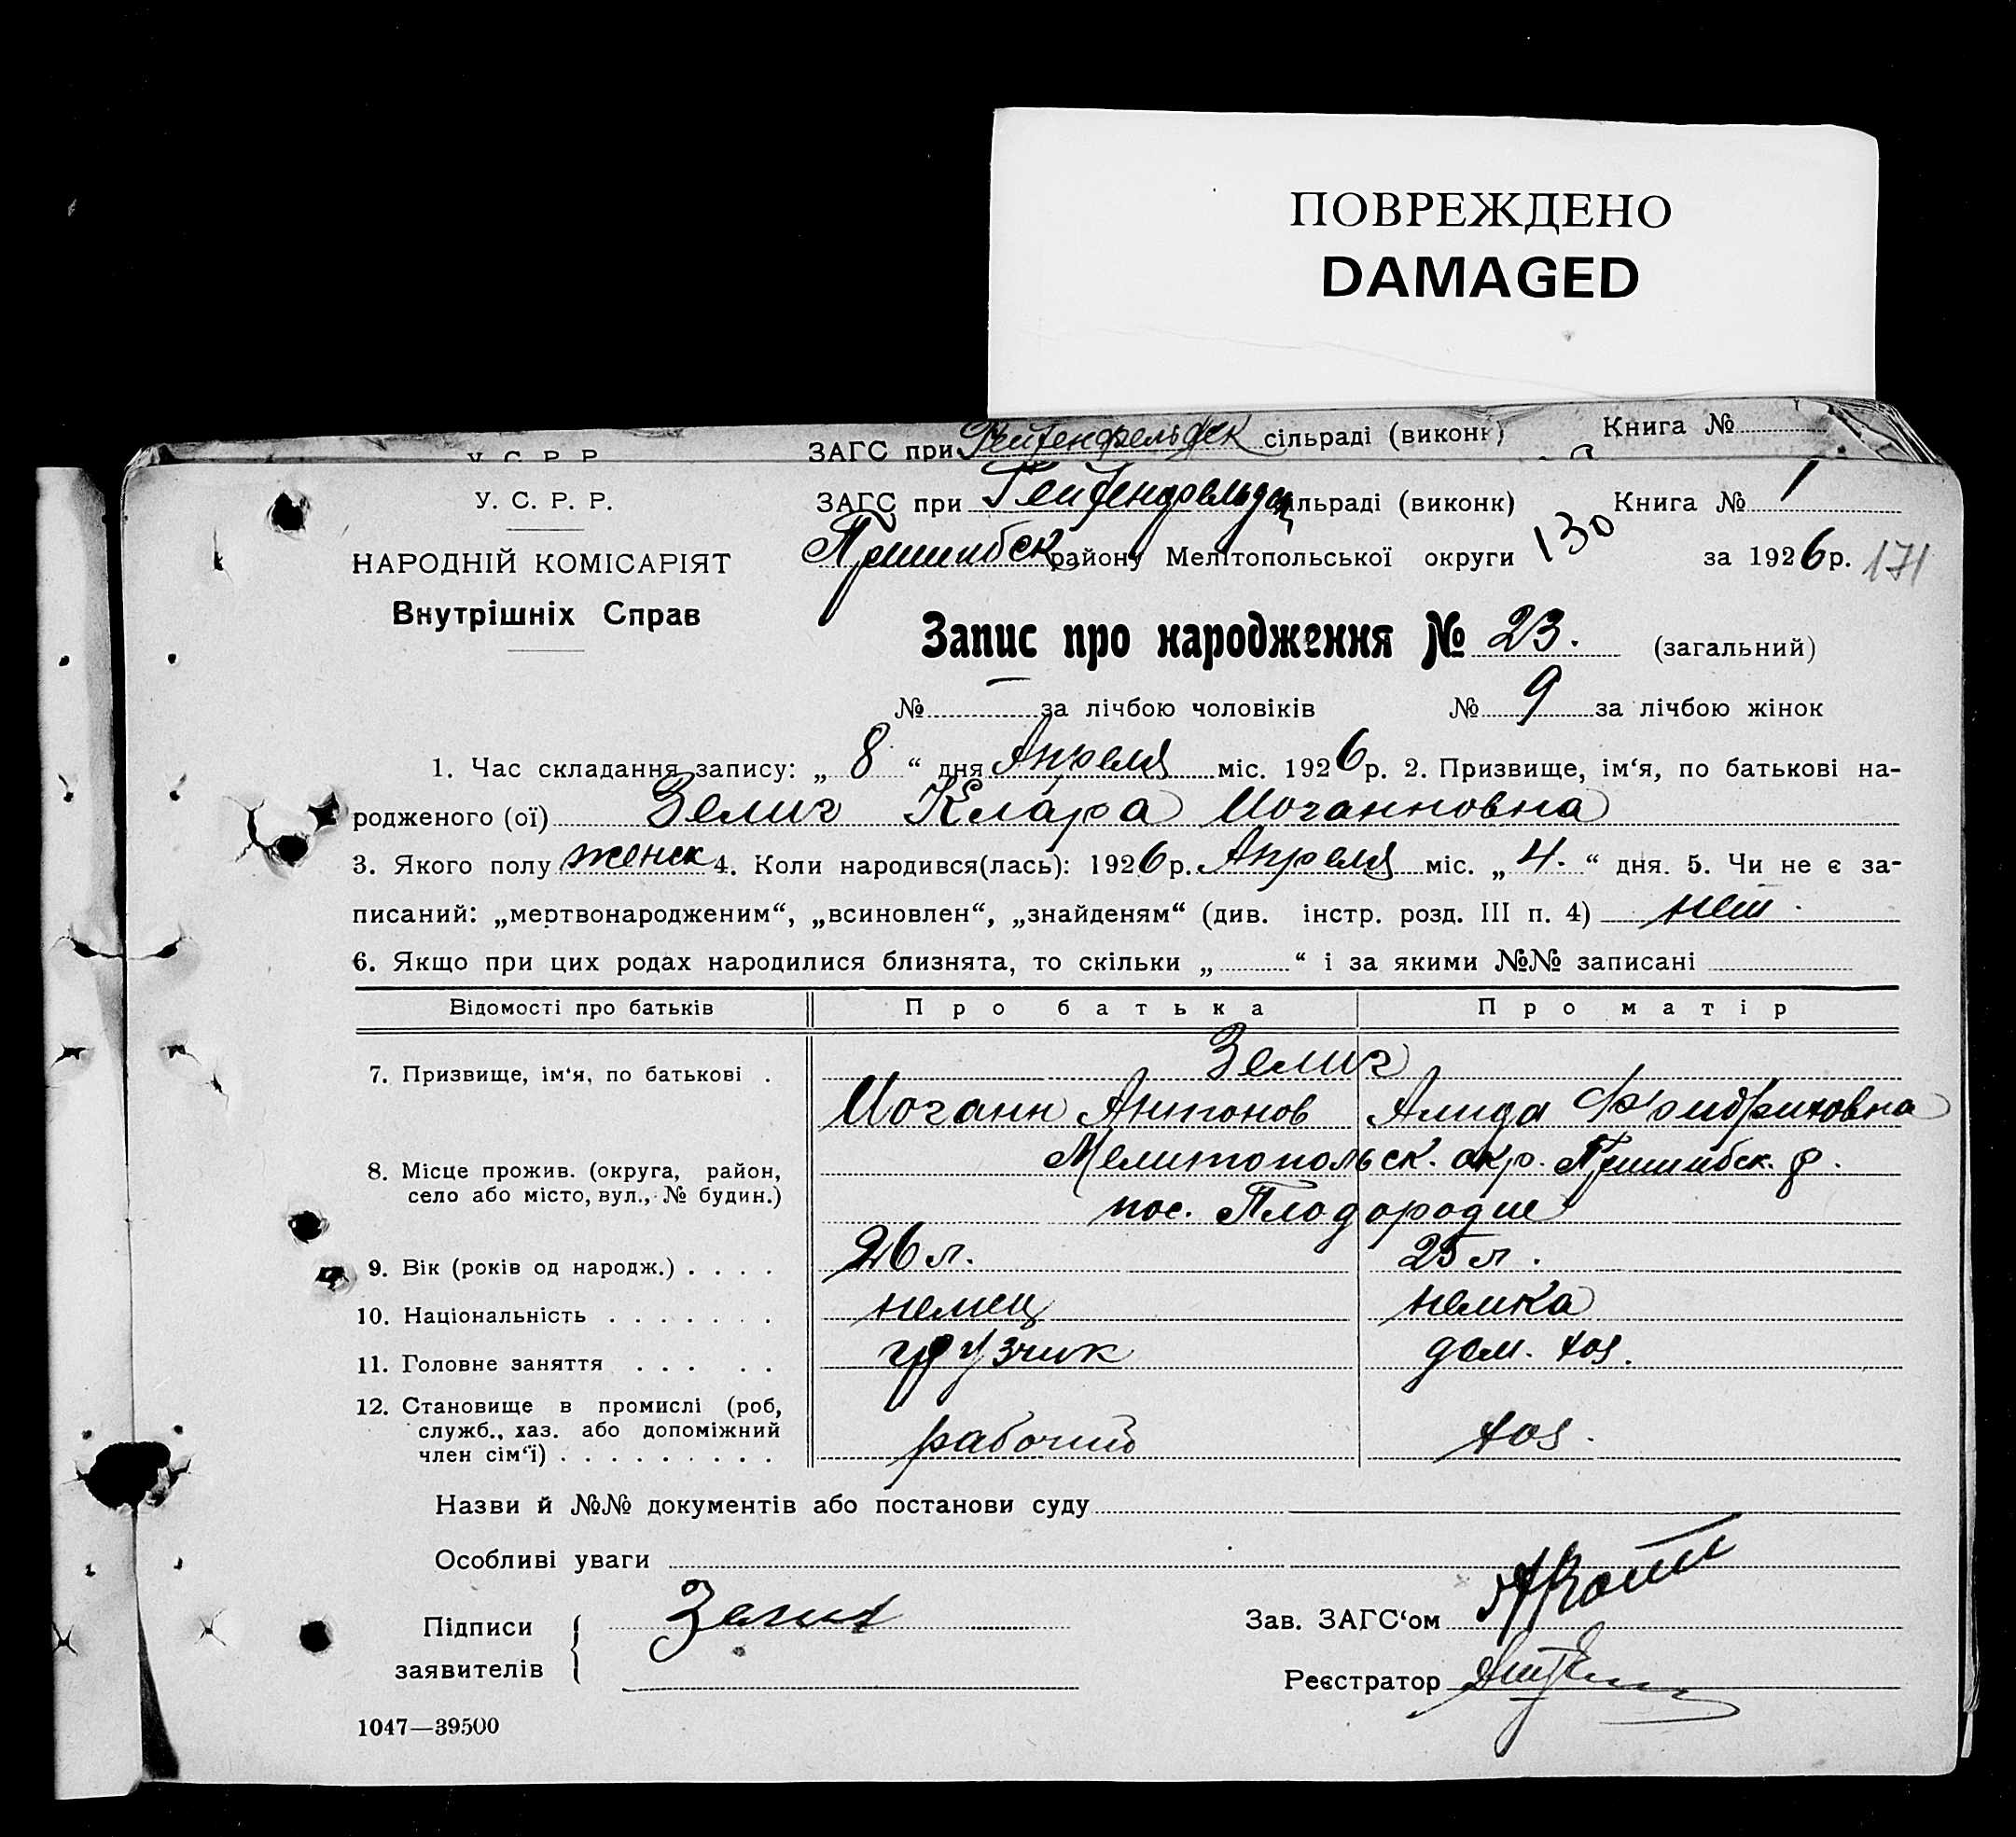 ПОВРЕЖДЕНО
DAMAGED
У. С. Р. Р.
ЗАГС при Гейтенфельдск сільраді (виконк) Книга №
У. С. Р. Р.
ЗАГС при Гейтенфельдск сільраді (виконк) Книга № 1
НАРОДНІЙ КОМІСАРІЯТ
Пришибск району Мелітопольської округи 130 за 1926 р. 171
Внутрішніх Справ
Запис про народження № 23. (загальний)
№ — за лічбою чоловіків № 9 за лічбою жінок
1. Час складання запису: „ 8 “ дня Апреля міс. 1926 р. 2. Призвище, ім‘я, по батькові на-
родженого (ої) Зелиг Клара Иоганновна
3. Якого полу женск 4. Коли народився(лась): 1926 р. Апреля міс. „ 4. “ дня. 5. Чи не є за-
писаний: „мертвонародженим“, „всиновлен“, „знайденям“ (див. інстр. розд. III п. 4) нет.
6. Якщо при цих родах народилися близнята, то скільки „ “ і за якими №№ записані
Відомості про батьків Про батька Про матір
Зелиг
7. Призвище, ім‘я, по батькові .
Иоганн Антонов Алида Фридриховна
Мелитопольск. окр. Пришибск. р.
8. Місце прожив. (округа, район,
село або місто, вул., № будин.)
пос. Плодородие
9. Вік (років од народж.) . . . . 26 л. 25 л.
10. Національність . . . . . . . немец немка
11. Головне заняття . . . . . грузчик дом. хоз.
12. Становище в промислі (роб,
служб., хаз. або допоміжний
член сім‘ї) . . . . . . . . . рабочий хоз.
Назви й №№ документів або постанови суду
Особливі уваги
Підписи
заявителів
Зелиг
Зав. ЗАГС‘ом
Реєстратор
1047—39500